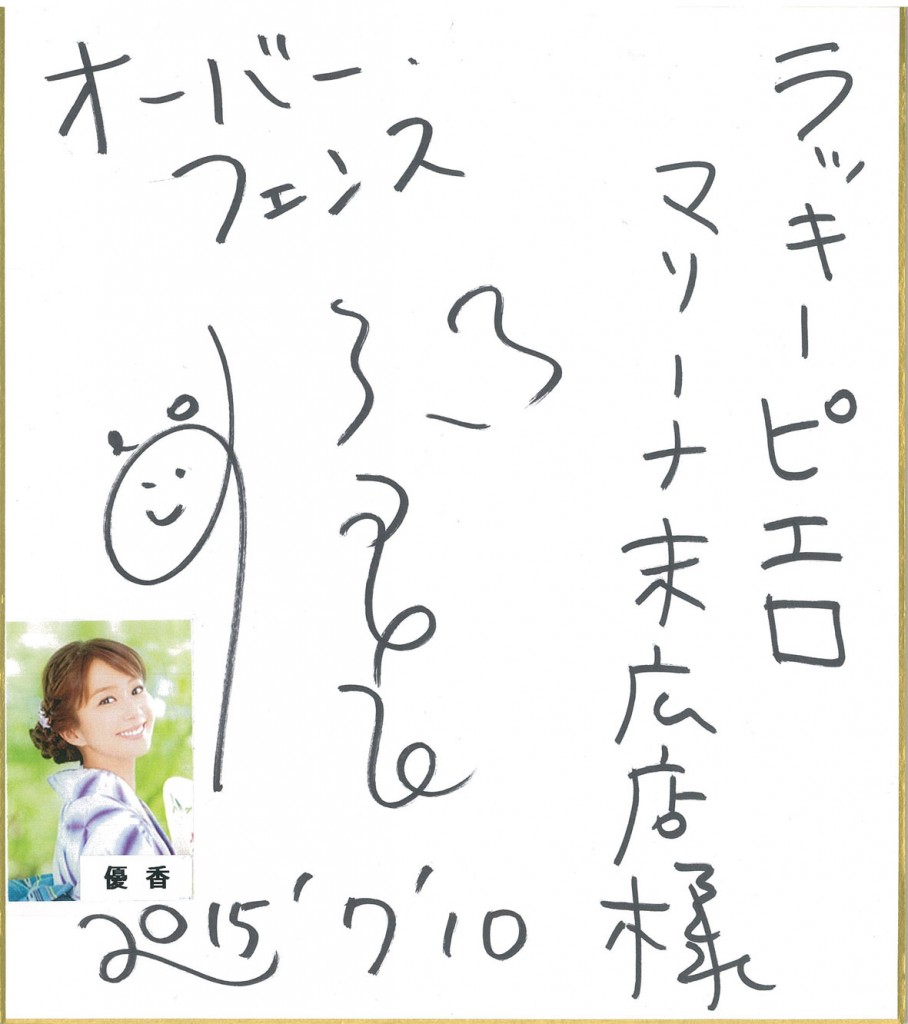 ラッキーピエロ
マリーナ末広店様
オーバー・
フェンス
優香
2015' 7' 10